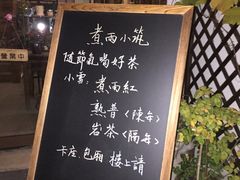 煮雨小筑
随節氣喝好茶
小雪：煮雨紅
熟普（陳年）
岩茶（隔年）
卡座.包廂 樓上請
營業中